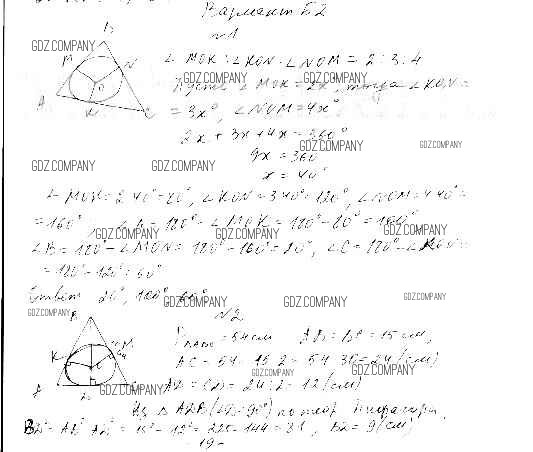 Вариант Б2
№1
∠ MOK : ∠ KON : ∠ NOM = 2 : 3 : 4
Пусть ∠ MOK = 2x°, тогда ∠ KON =
= 3x°, ∠ NOM = 4x°
2x + 3x + 4x = 360°
9x = 360
x = 40°
∠ MOK = 2·40° = 80°, ∠ KON = 3·40° = 120°, ∠ NOM = 4·40° =
= 160° ∠ A = 180° - ∠ MOK = 180° - 80° = 100°
∠ B = 180° - ∠ MON = 180° - 160° = 20°, ∠ C = 180° -
= 180° - 120° = 60°
Ответ 20°, 100°, 60°
№2
P = 54 см AB = BC = 15 см,
AC = 54 - 15·2 = 54 - 30 = 24 (см)
AD = CD = 24 : 2 = 12 (см)
Из Δ ADB (∠D = 90°) по теор. Пифагора,
BD² = AB² - AD² = 15² - 12² = 225 - 144 = 81, BD = 9 (см)
GDZ.COMPANY